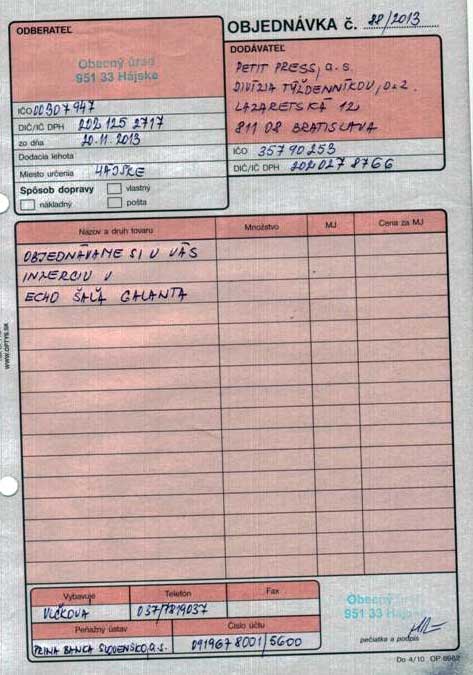 ODBERATEĽ
Obecný úrad
951 33 Hájske
IČO 00307947
DIČ/IČ DPH 202 125 2717
zo dňa 20.11.2013
Dodacia lehota
Miesto určenia HÁJSKE
Spôsob dopravy
vlastný
nákladný
pošta
OBJEDNÁVKA č. 88/2013
DODÁVATEĽ
PETIT PRESS, a.s.
DIVÍZIA TÝŽDENNÍKOV, o.z.
LAZARETSKÁ 12
811 08 BRATISLAVA
IČO 35790253
DIČ/IČ DPH 202027 8766
Názov a druh tovaru Množstvo MJ Cena za MJ
OBJEDNÁVAME SI U VÁS
INZERCIU V
ECHO ŠAĽA GALANTA
WWW.OPTYS.SK
Vybavuje Telefón Fax
VLČKOVA 037/7819037
Peňažný ústav Číslo účtu
PRIMA BANKA SLOVENSKO, a.s. 0919678001/5600
Obecný úrad
951 33 Hájske
pečiatka a podpis
Do 4/10 OP 6962